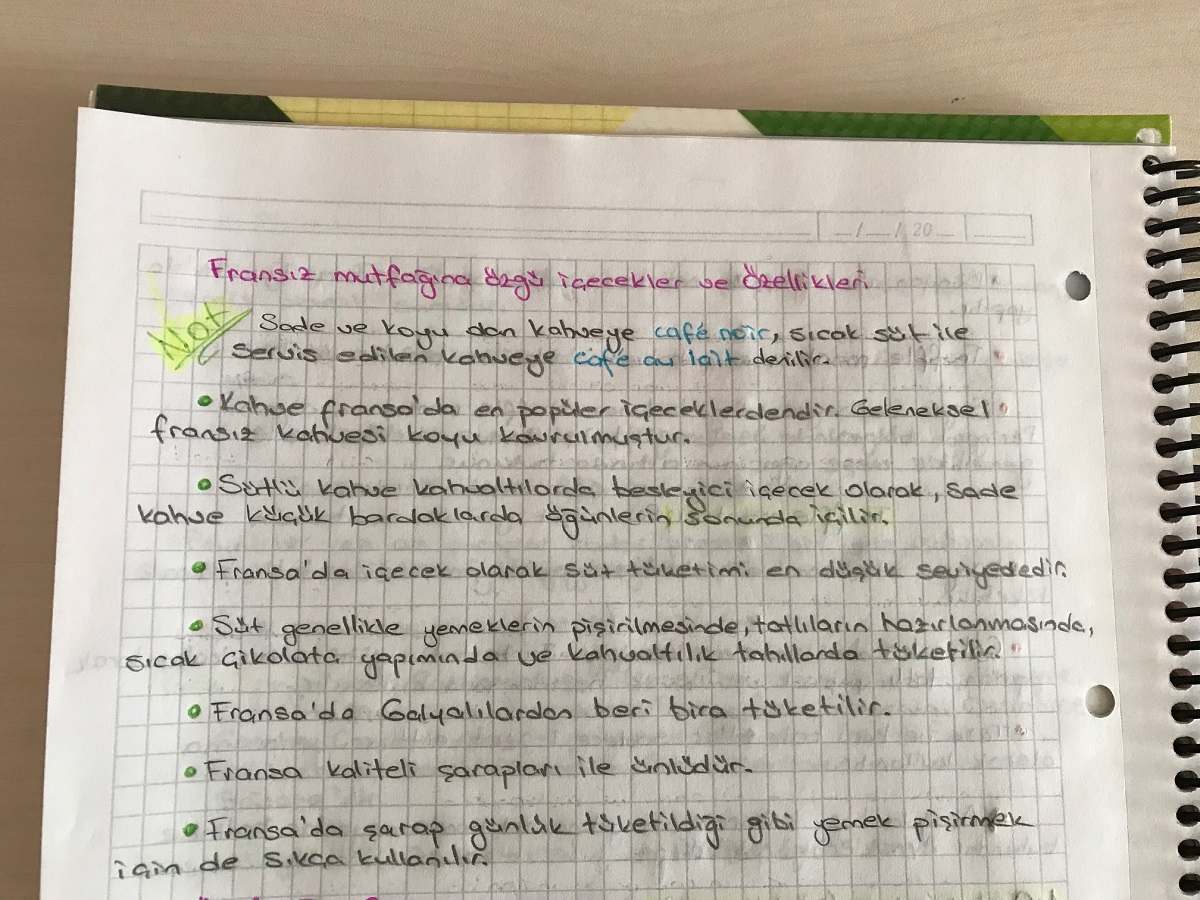 __/__/20__
Fransız mutfağına özgü içecekler ve özellikleri
Not
Sade ve koyu dan kahveye café noir, sıcak süt ile
servis edilen kahveye café au lait denilir.
• Kahve fransa'da en popüler içeceklerdendir. Geleneksel
fransız kahvesi koyu kavrulmuştur.
• Sütlü kahve kahvaltılarda besleyici içecek olarak, sade
kahve küçük bardaklarda öğünlerin sonunda içilir.
• Fransa'da içecek olarak süt tüketimi en düşük seviyededir.
• Süt genellikle yemeklerin pişirilmesinde, tatlıların hazırlanmasında,
sıcak çikolata yapımında ve kahvaltılık tahıllarda tüketilir.
• Fransa'da Galyalılardan beri bira tüketilir.
• Fransa kaliteli şarapları ile ünlüdür.
• Fransa'da şarap günlük tüketildiği gibi yemek pişirmek
için de sıkça kullanılır.